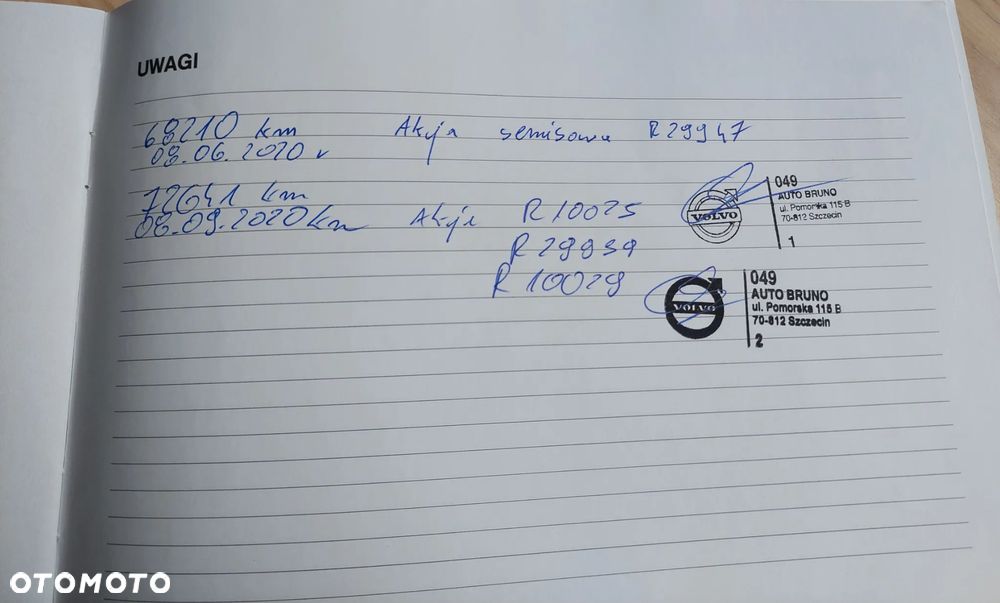 UWAGI
68210 km Akcja serwisowa R29947
08.06.2020 r
VOLVO
049
AUTO BRUNO
ul. Pomorska 115 B
70-812 Szczecin
1
72641 km
08.09.2020 km Akcje R10025
R29939
R10029
VOLVO
049
AUTO BRUNO
ul. Pomorska 115 B
70-812 Szczecin
2
OTOMOTO